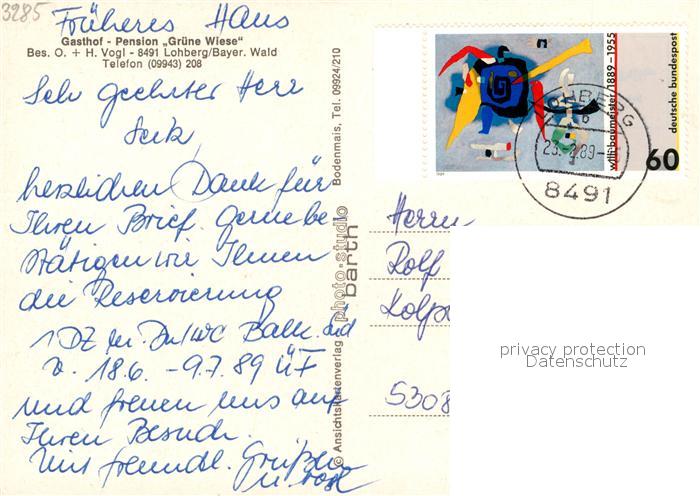 3285
Früheres Haus
Gasthof - Pension „Grüne Wiese"
Bes. O. + H. Vogl - 8491 Lohberg/Bayer. Wald
Telefon (09943) 208
Sehr geehrter Herr
herzlichen Dank für
Ihren Brief. Gerne be-
stätigen wir Ihnen
die Reservierung
1 DZ mit Du/WC Balk. Süd
v. 18.6. - 9.7.89 ÜF
und freuen uns auf
Ihren Besuch.
Mit freundl. Grüßen
© Ansichtskartenverlag photo-studio barth Bodenmais, Tel. 09924/210
willi baumeister 1889-1955
deutsche bundespost
60
LOHBERG
6
23.-2.89-
8491
Herrn
Rolf
5308
privacy protection
Datenschutz